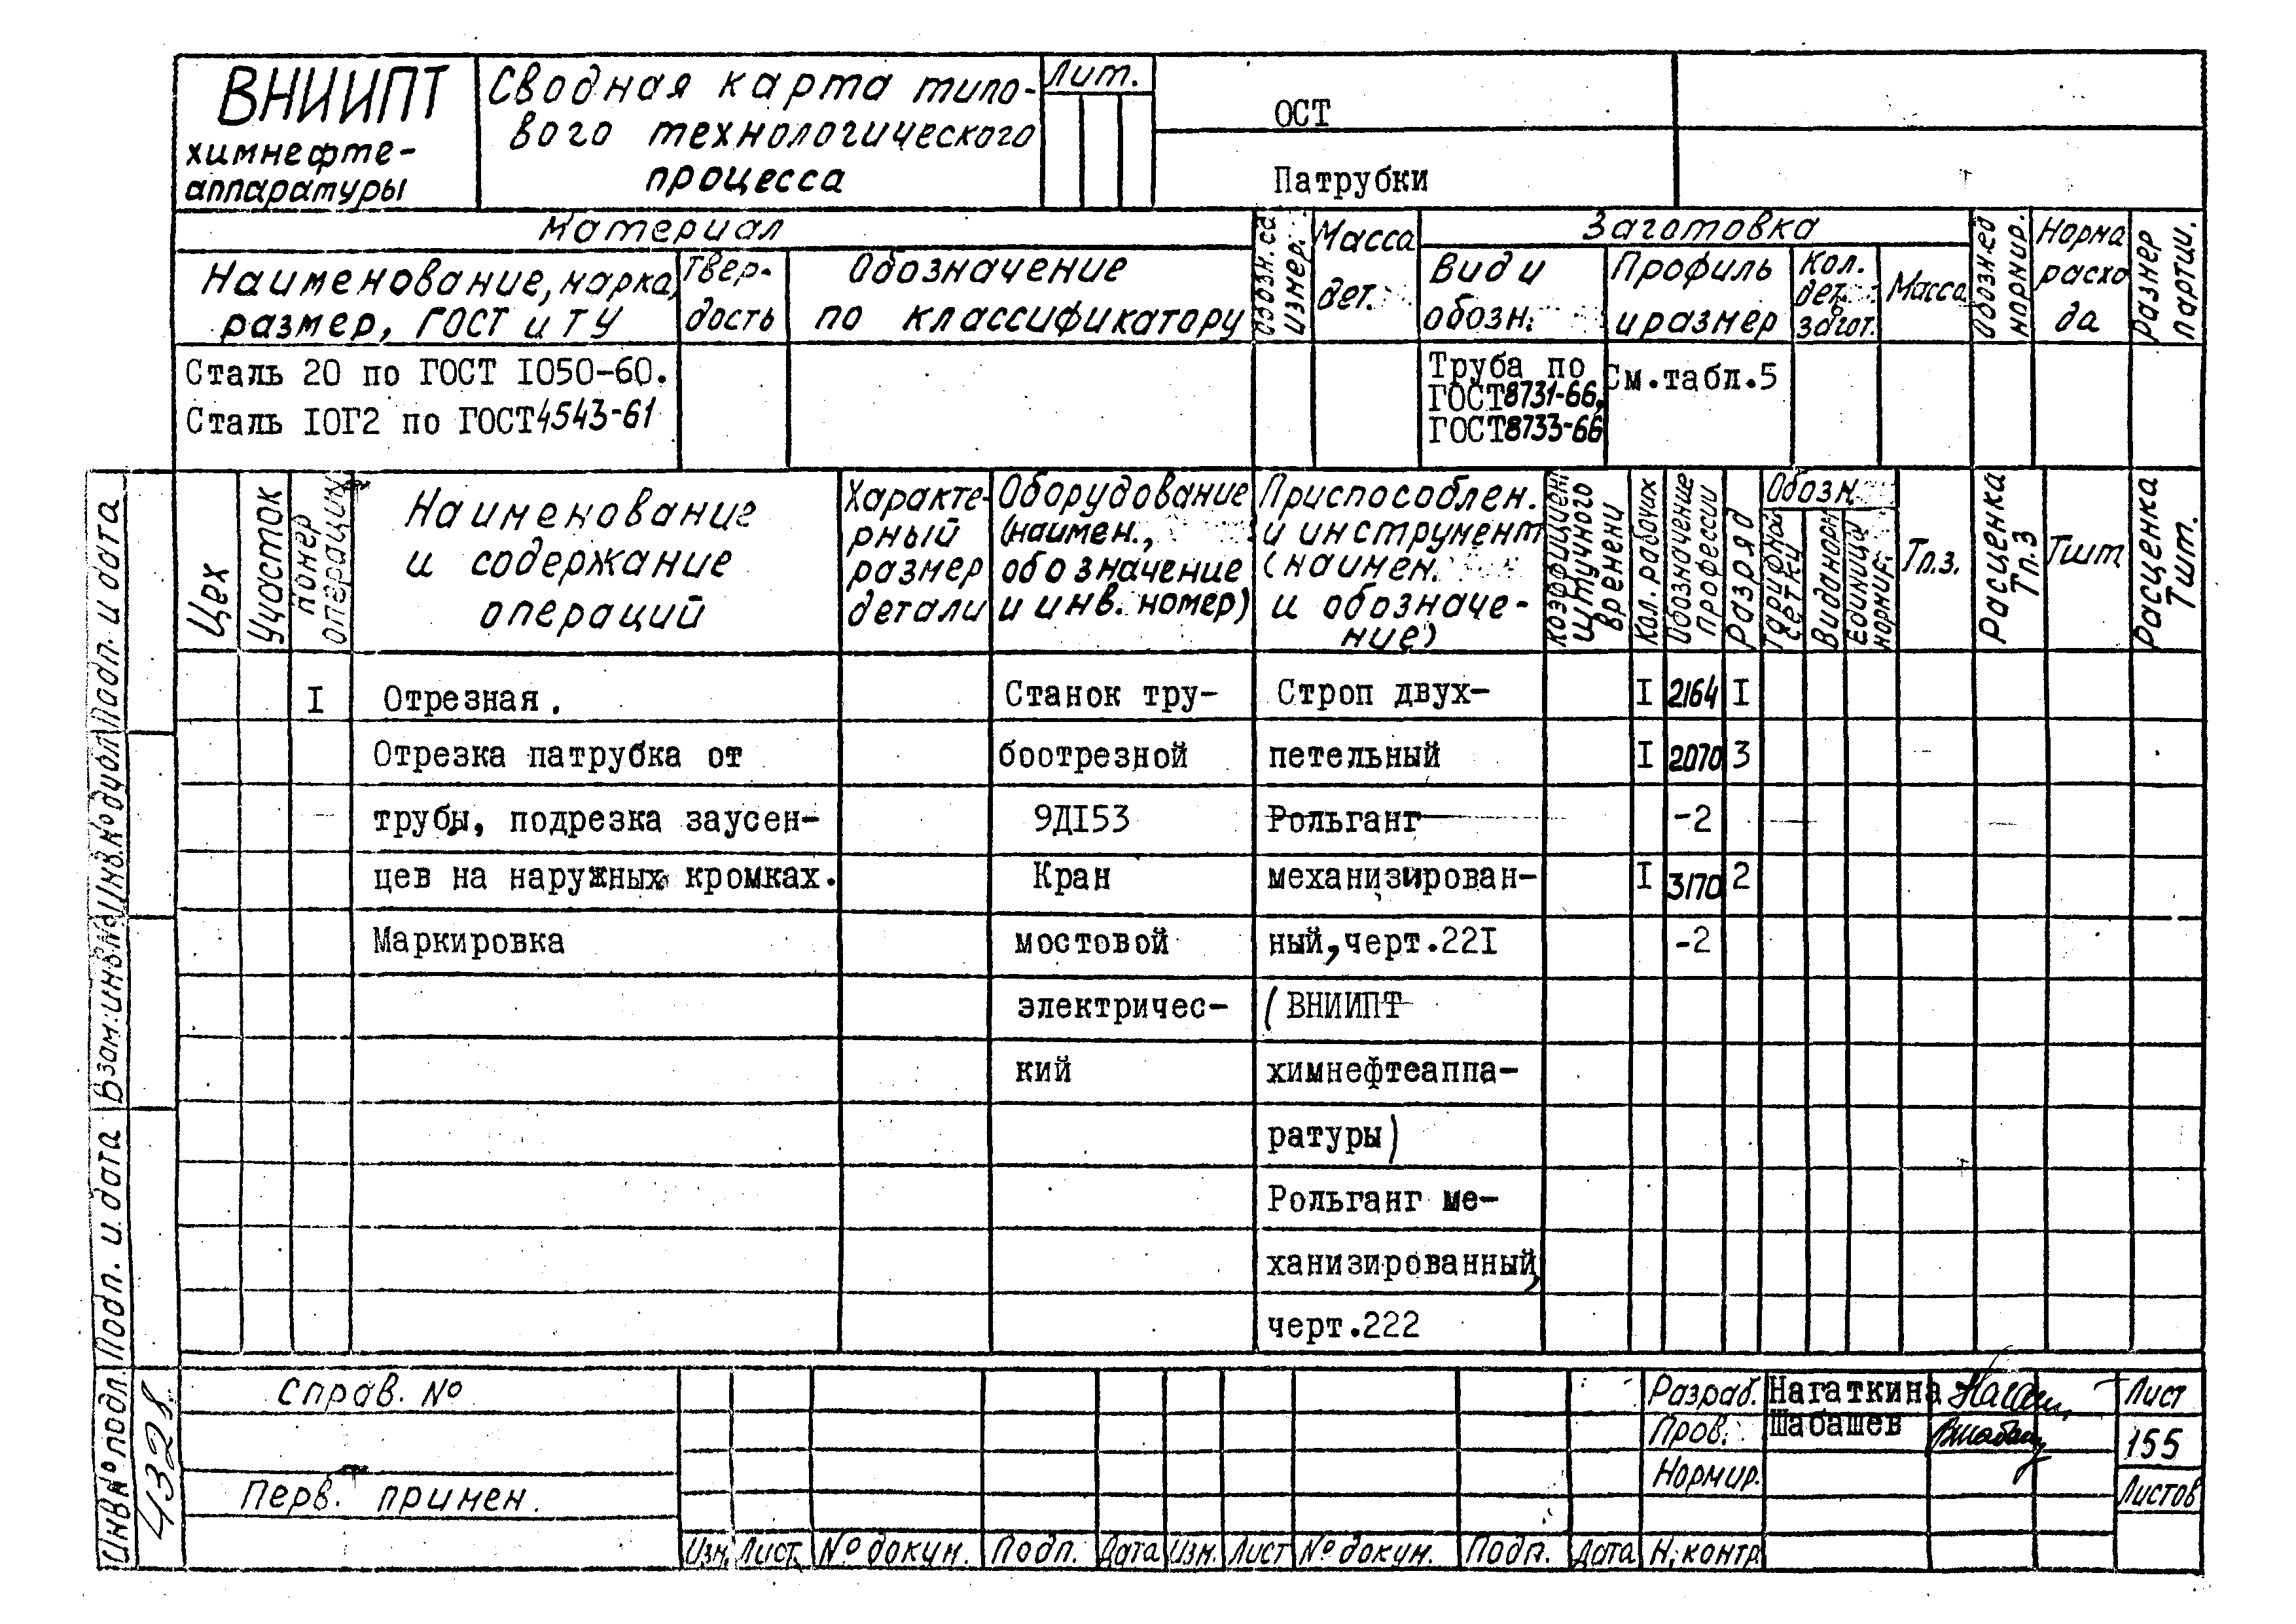 ВНИИПТ
химнефте-
аппаратуры
Сводная карта типо-
вого технологического
процесса
Лит.
ОСТ
Патрубки
Материал
Наименование, марка,
размер, ГОСТ и ТУ
Твер-
дость
Обозначение
по классификатору
Обозн. ед
измер.
Масса
дет.
Заготовка
Вид и
обозн.
Профиль
и размер
Кол.
дет.
в
загот.
Масса
Обозн.ед
нормир.
Норма
расхо
да
Размер
партии.
Сталь 20 по ГОСТ I050-60.
Сталь I0Г2 по ГОСТ4543-61
Труба по
ГОСТ8731-66,
ГОСТ8733-66
См.табл.5
Цех
Участок
Номер
операции
Наименование
и содержание
операций
Характе-
рный
размер
детали
Оборудование
(наимен.,
обозначение
и инв. номер)
Приспособлен.
и инструмент
(наимен.
и обозначе-
ние)
Коэффициент
штучного
времени
Кол. рабочих
Обозначение
профессии
Разряд
Обозн.
Тарифной
сетки
Вида норм
Единица
нормир.
Тп.з.
Расценка
Тп.з
Тшт
Расценка
Тшт.
I Отрезная. Станок тру- Строп двух- I 2164 I
Отрезка патрубка от боотрезной петельный I 2070 3
трубы, подрезка заусен- 9ДI53 Рольганг -2
цев на наружных кромках. Кран механизирован- I 3170 2
Маркировка мостовой ный, черт.22I -2
электричес- (ВНИИПТ
кий химнефтеаппа-
ратуры)
Рольганг ме-
ханизированный,
черт.222
Инв № подл. Подп. и дата Взам.инв№ Инв.№ дубл Подп. и дата
4328
Справ. №
Перв. примен.
Изм. Лист. № докум. Подп. Дата Изм. Лист № докум. Подп. Дата
Разраб. Нагаткина
Пров. Шабашев
Нормир.
Н. контр.
Лист
155
Листов